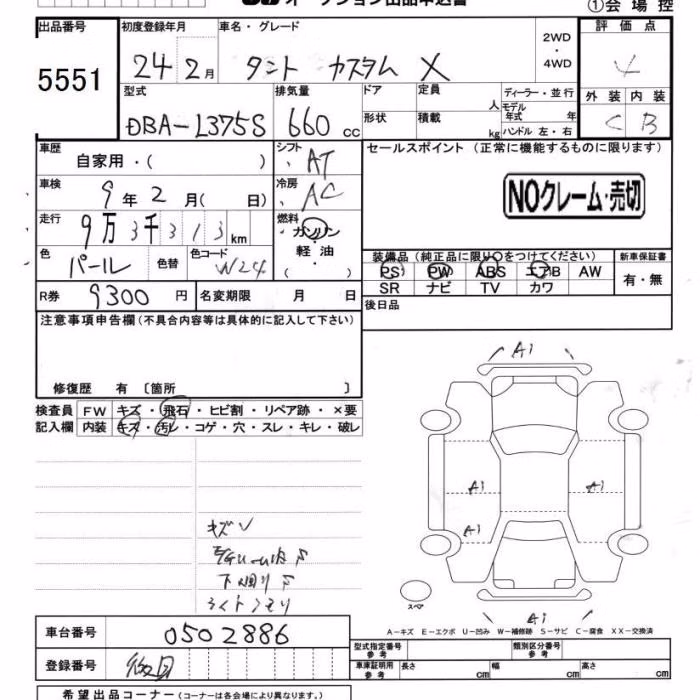 ①会場控
出品番号 初度登録年月 車名・グレード 2WD・4WD 評価点
5551 24 2月 タント カスタム X 4
型式 排気量 ドア 定員 人 ディーラー・並行 外装 内装
DBA-L375S 660cc 形状 積載 kg モデル年式 年 ハンドル 左・右 C B
車歴 自家用・( ) シフト AT セールスポイント(正常に機能するものに限ります)
車検 9年2月( 日) 冷房 AC NOクレーム・売切
走行 9万3千313km 燃料 ガソリン・軽油・( )
色 パール 色替 色コード W24 装備品(純正品に限り〇をつけてください) 新車保証書
PS PW ABS エアB AW 有・無
SR ナビ TV カワ
R券 9300円 名変期限 月 日 後日品
注意事項申告欄(不具合内容等は具体的に記入して下さい)
修復歴 有〔箇所 〕
検査員 FW キズ・飛石・ヒビ割・リペア跡・×要
記入欄 内装 キズ・汚レ・コゲ・穴・スレ・キレ・破レ
A1
A1 A1
A1
キズV
下回りサ
ライトクモリ
スペア
A1
A-キズ E-エクボ U-凹み W-補修跡 S-サビ C-腐食 XX-交換済
車台番号 0502886
登録番号
型式指定番号 参考 類別区分番号 参考
車庫証明用 参考 長さ cm 幅 cm 高さ cm
希望出品コーナー(コーナーは各会場により異なります。)